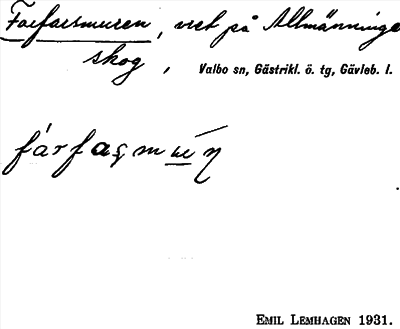 Farfarsmuren, vret på Allmänninge
skog,
Valbo sn, Gästrikl. ö. tg, Gävleb. l.
EMIL LEMHAGEN 1931.